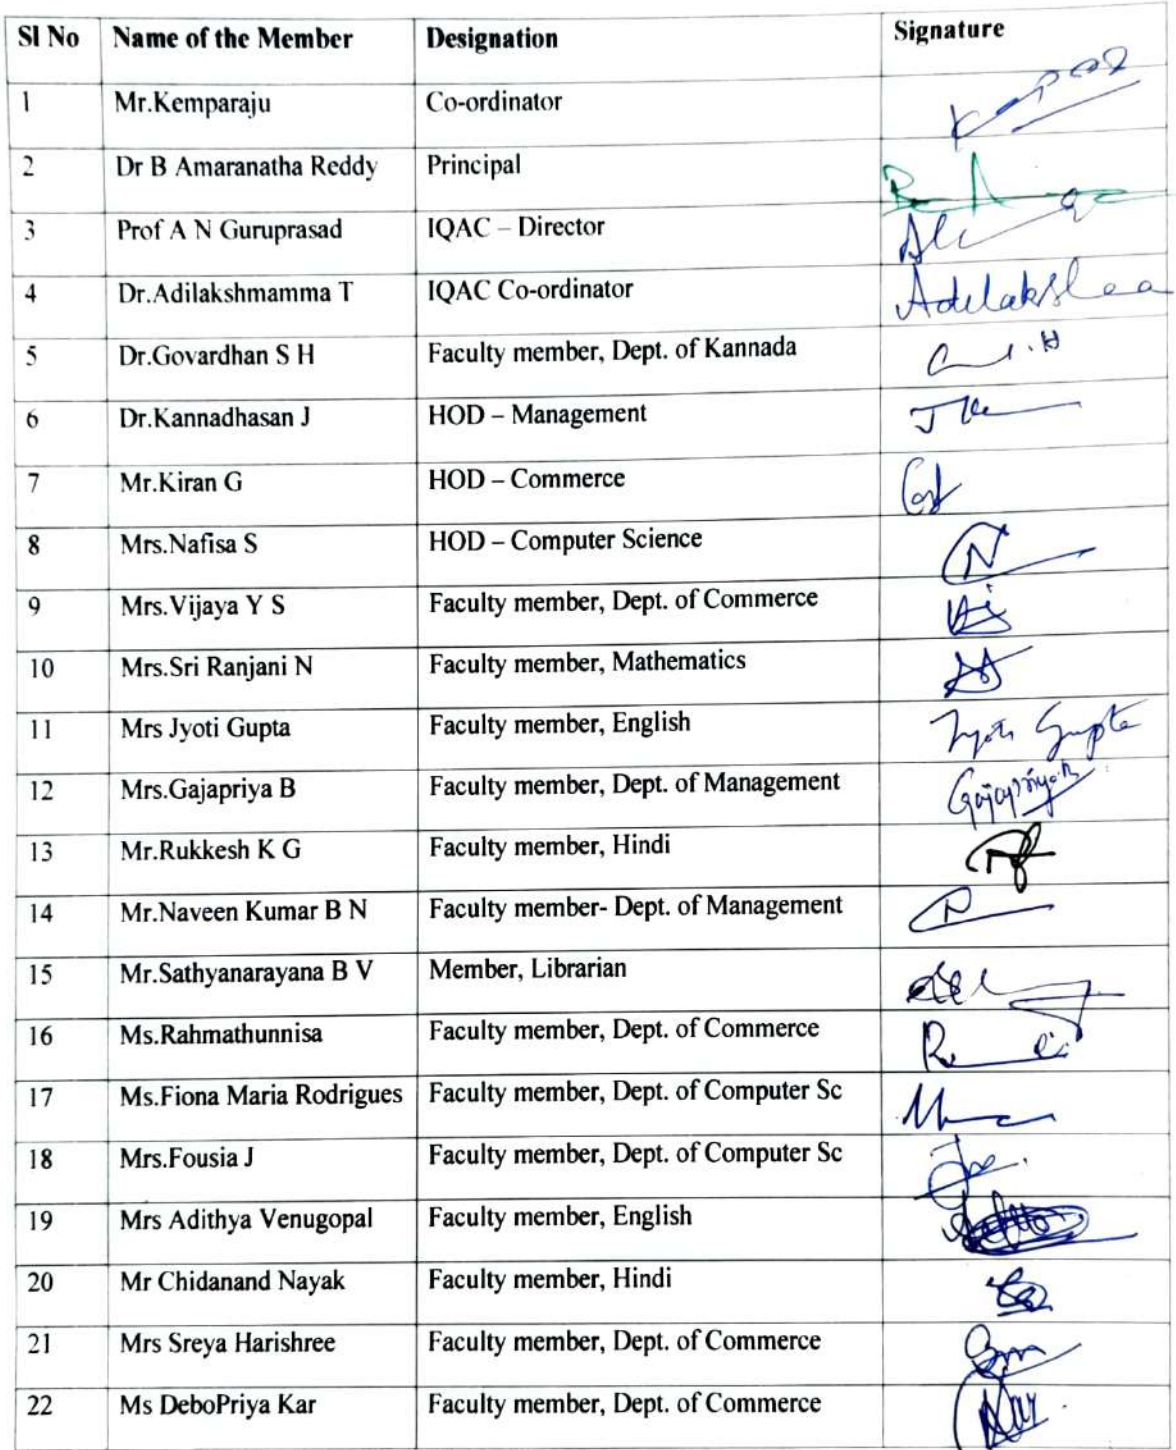 Sl No Name of the Member Designation Signature
1 Mr.Kemparaju Co-ordinator
2 Dr B Amaranatha Reddy Principal
3 Prof A N Guruprasad IQAC – Director
4 Dr.Adilakshmamma T IQAC Co-ordinator
5 Dr.Govardhan S H Faculty member, Dept. of Kannada
6 Dr.Kannadhasan J HOD – Management
7 Mr.Kiran G HOD – Commerce
8 Mrs.Nafisa S HOD – Computer Science
9 Mrs.Vijaya Y S Faculty member, Dept. of Commerce
10 Mrs.Sri Ranjani N Faculty member, Mathematics
11 Mrs Jyoti Gupta Faculty member, English Jyoti Gupta
12 Mrs.Gajapriya B Faculty member, Dept. of Management Gajapriya.B
13 Mr.Rukkesh K G Faculty member, Hindi
14 Mr.Naveen Kumar B N Faculty member- Dept. of Management
15 Mr.Sathyanarayana B V Member, Librarian
16 Ms.Rahmathunnisa Faculty member, Dept. of Commerce
17 Ms.Fiona Maria Rodrigues Faculty member, Dept. of Computer Sc
18 Mrs.Fousia J Faculty member, Dept. of Computer Sc
19 Mrs Adithya Venugopal Faculty member, English
20 Mr Chidanand Nayak Faculty member, Hindi
21 Mrs Sreya Harishree Faculty member, Dept. of Commerce
22 Ms DeboPriya Kar Faculty member, Dept. of Commerce